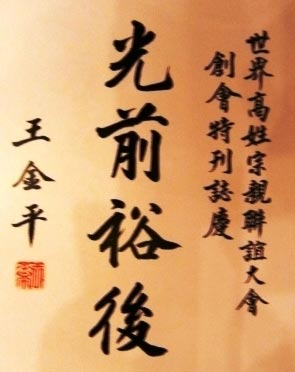 世界高姓宗親聯誼大會
創會特刊誌慶
光前裕後
王金平